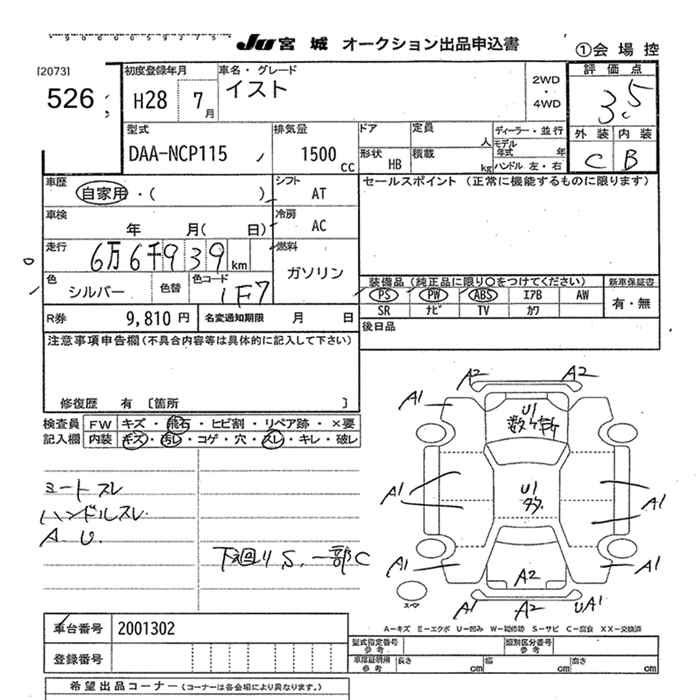 JU 宮城 オークション出品申込書
①会場控
[2073]
526
初度登録年月
H28 7月
車名・グレード
イスト
2WD
・
4WD
評価点
3.5
型式
DAA-NCP115
排気量
1500 cc
ドア
定員 人
ディーラー・並行
モデル年式 年
形状 HB
積載 kg
ハンドル 左・右
外装 内装
C B
車歴
自家用・( )
シフト AT
セールスポイント (正常に機能するものに限ります)
車検
年 月( 日)
冷房 AC
走行
6万6千939km
燃料
ガソリン
色
シルバー
色替
色コード
1F7
装備品 (純正品に限り○をつけてください)
新車保証書
PS PW ABS エアB AW
有・無
SR ナビ TV カワ
R券 9,810円
名変通知期限 月 日
後日品
注意事項申告欄(不具合内容等は具体的に記入して下さい)
修復歴 有 〔箇所 〕
検査員記入欄
FW キズ・飛石・ヒビ割・リペア跡・×要
内装 キズ・汚レ・コゲ・穴・スレ・キレ・破レ
シートスレ
ハンドルスレ
A U.
下廻りS、一部C
A2 A2
A1 A1
U1
数ヶ所
A1 U1 A1
多
A1
A1 A2 A1
スペア
A1 A2 UA1
A-キズ E-エクボ U-凹み W-補修跡 S-サビ C-腐食 XX-交換済
車台番号 2001302
型式指定番号 参考
類別区分番号 参考
登録番号
車庫証明用 参考
長さ cm
幅 cm
高さ cm
希望出品コーナー (コーナーは各会場により異なります。)